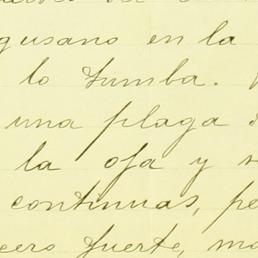 gusano en la
lo tumba.
una plaga
la oja y
continuas, pe
cero fuerte, ma